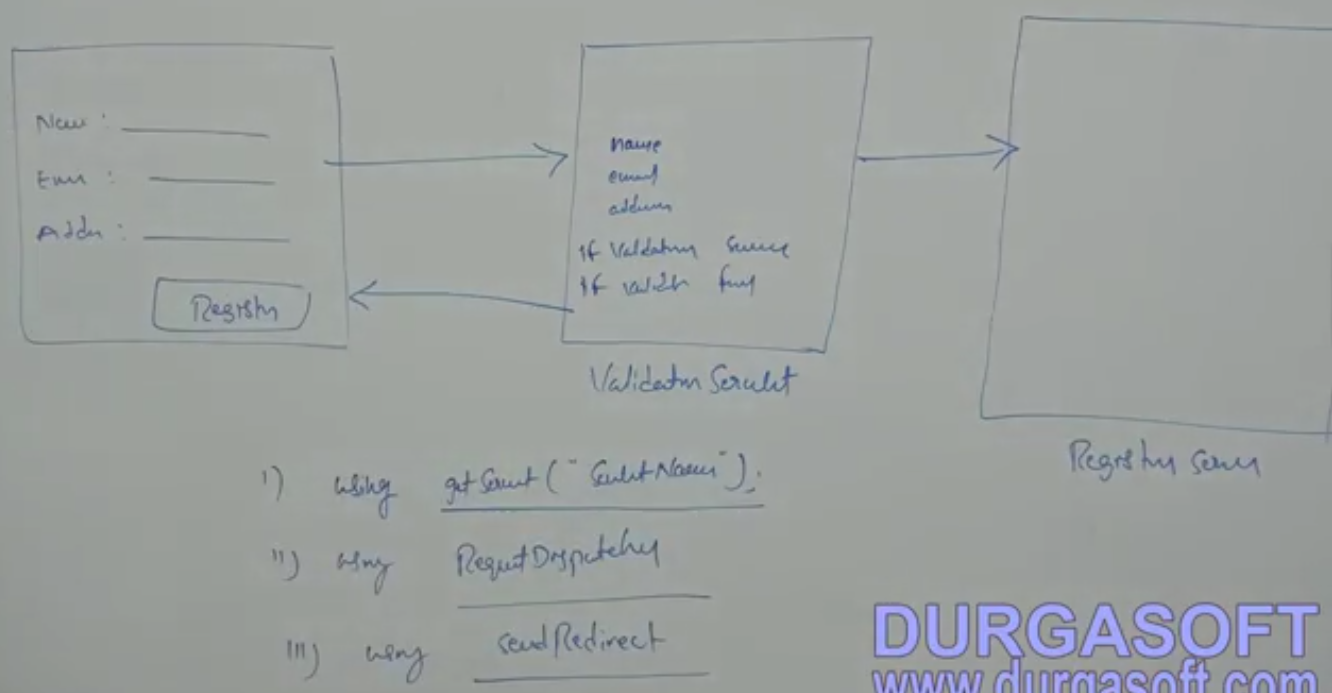 Name :
Email :
Addr :
Register
name
email
address
If Validation Success
If validation fail
Validation Servlet
Registry Serv
1) using getServlet("ServletName");
11) using RequestDispatcher
111) using sendRedirect
DURGASOFT
www.durgasoft.com